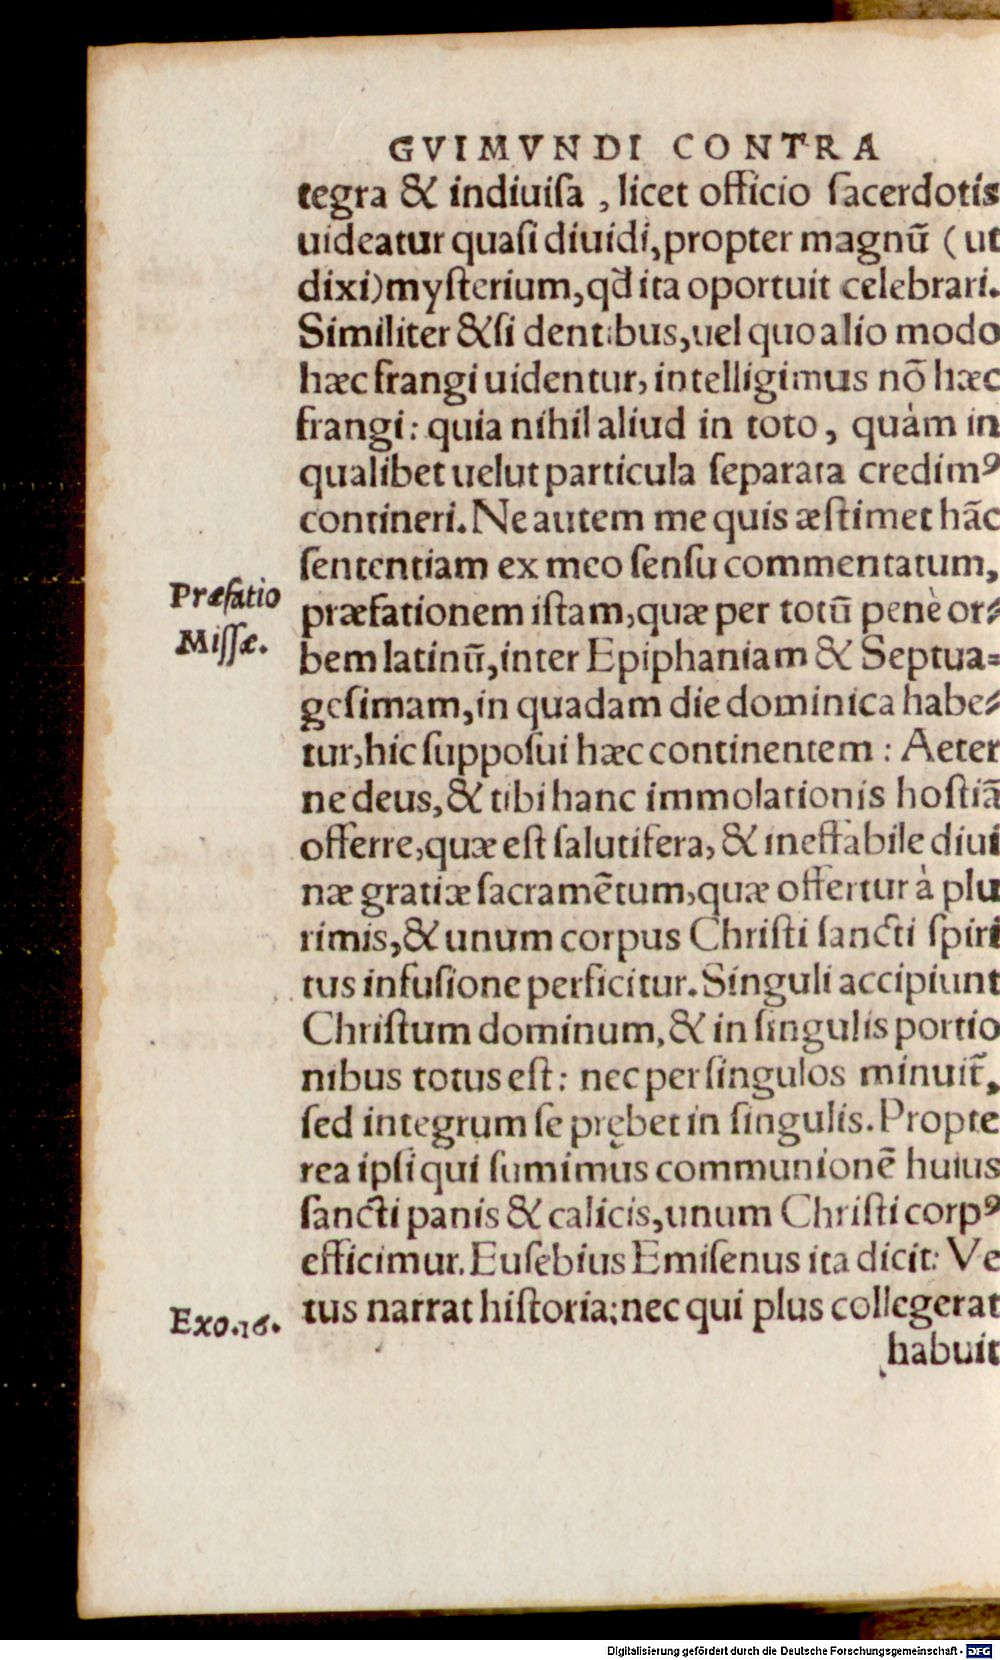 GVIMVNDI CONTRA
tegra & indiuiſa , licet officio ſacerdotis
uideatur quaſi diuidi, propter magnū ( ut
dixi) myſterium, qđ ita oportuit celebrari.
Similiter & ſi dentibus, uel quo alio modo
hæc frangi uidentur, intelligimus nō hæc
frangi: quia nihil aliud in toto, quàm in
qualibet uelut particula ſeparata credimꝰ
contineri. Ne autem me quis æſtimet hāc
ſententiam ex meo ſenſu commentatum,
Præfatio
Miſſæ.
præfationem iſtam, quæ per totū penè or⸗
bem latinū, inter Epiphaniam & Septua⸗
geſimam, in quadam die dominica habe⸗
tur, hic ſuppoſui hæc continentem : Aeter
ne deus, & tibi hanc immolationis hoſtiā
offerre, quæ eſt ſalutifera, & ineffabile diui
næ gratiæ ſacramētum, quæ offertur à plu
rimis, & unum corpus Chriſti ſancti ſpiri
tus infuſione perficitur. Singuli accipiunt
Chriſtum dominum, & in ſingulis portio
nibus totus eſt: nec per ſingulos minuit̃,
ſed integrum ſe prębet in ſingulis. Propte
rea ipſi qui ſumimus communionē huius
ſancti panis & calicis, unum Chriſti corpꝰ
efficimur. Euſebius Emiſenus ita dicit: Ve
Exo.16.
tus narrat hiſtoria; nec qui plus collegerat
habuit
Digitalisierung gefördert durch die Deutsche Forschungsgemeinschaft - DFG